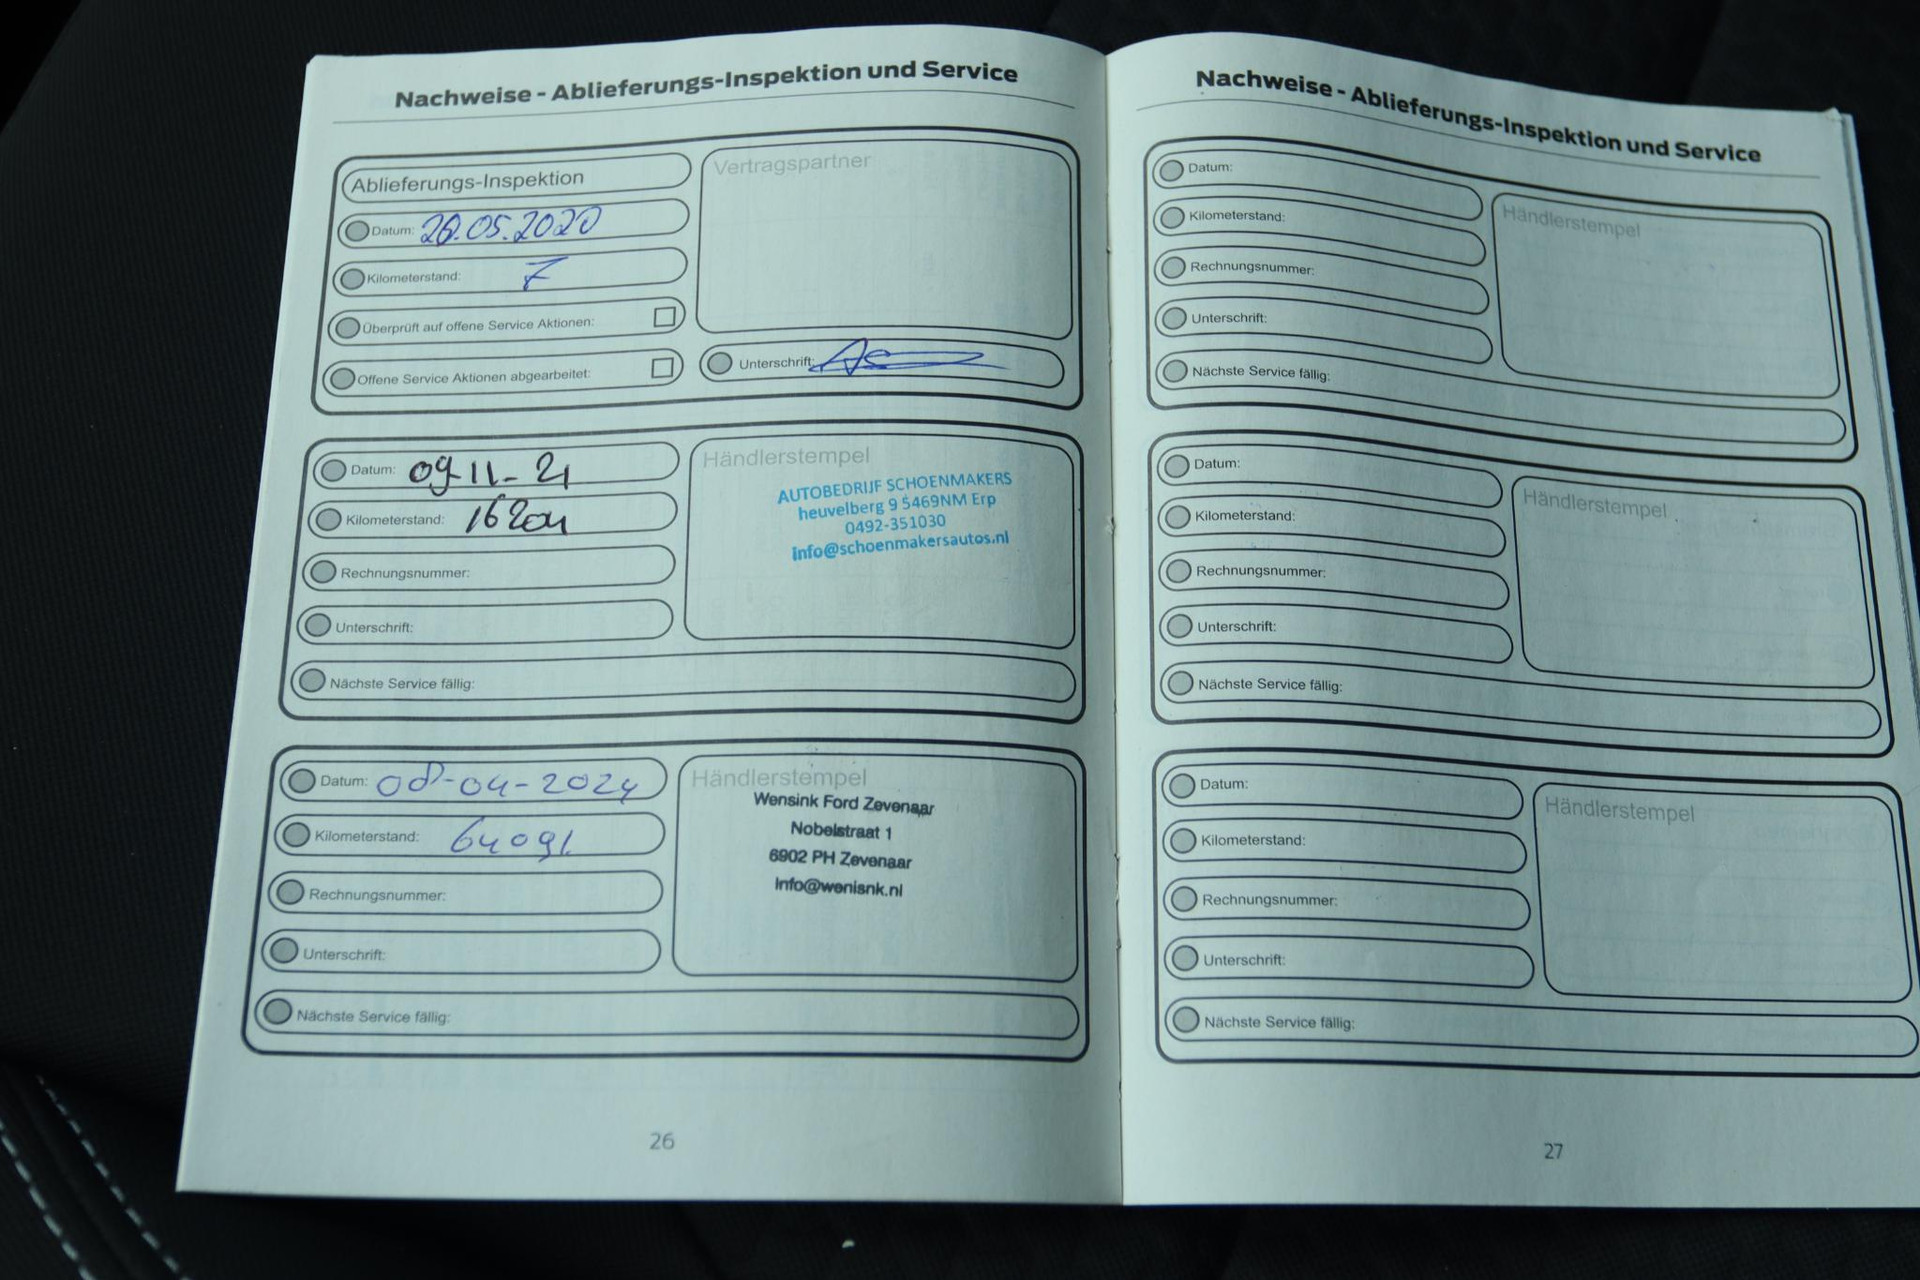 Nachweise - Ablieferungs-Inspektion und Service
Ablieferungs-Inspektion
Datum: 20.05.2020
Kilometerstand: 7
Überprüft auf offene Service Aktionen:
Offene Service Aktionen abgearbeitet:
Vertragspartner
Unterschrift:
Datum: 09-11-21
Kilometerstand: 16204
Rechnungsnummer:
Unterschrift:
Nächste Service fällig:
Händlerstempel
AUTOBEDRIJF SCHOENMAKERS
heuvelberg 9 5469NM Erp
0492-351030
info@schoenmakersautos.nl
Datum: 08-04-2024
Kilometerstand: 64091
Rechnungsnummer:
Unterschrift:
Nächste Service fällig:
Händlerstempel
Wensink Ford Zevenaar
Nobelstraat 1
6902 PH Zevenaar
Info@wenisnk.nl
26
Nachweise - Ablieferungs-Inspektion und Service
Datum:
Kilometerstand:
Rechnungsnummer:
Unterschrift:
Nächste Service fällig:
Händlerstempel
Datum:
Kilometerstand:
Rechnungsnummer:
Unterschrift:
Nächste Service fällig:
Händlerstempel
Datum:
Kilometerstand:
Rechnungsnummer:
Unterschrift:
Nächste Service fällig:
Händlerstempel
27